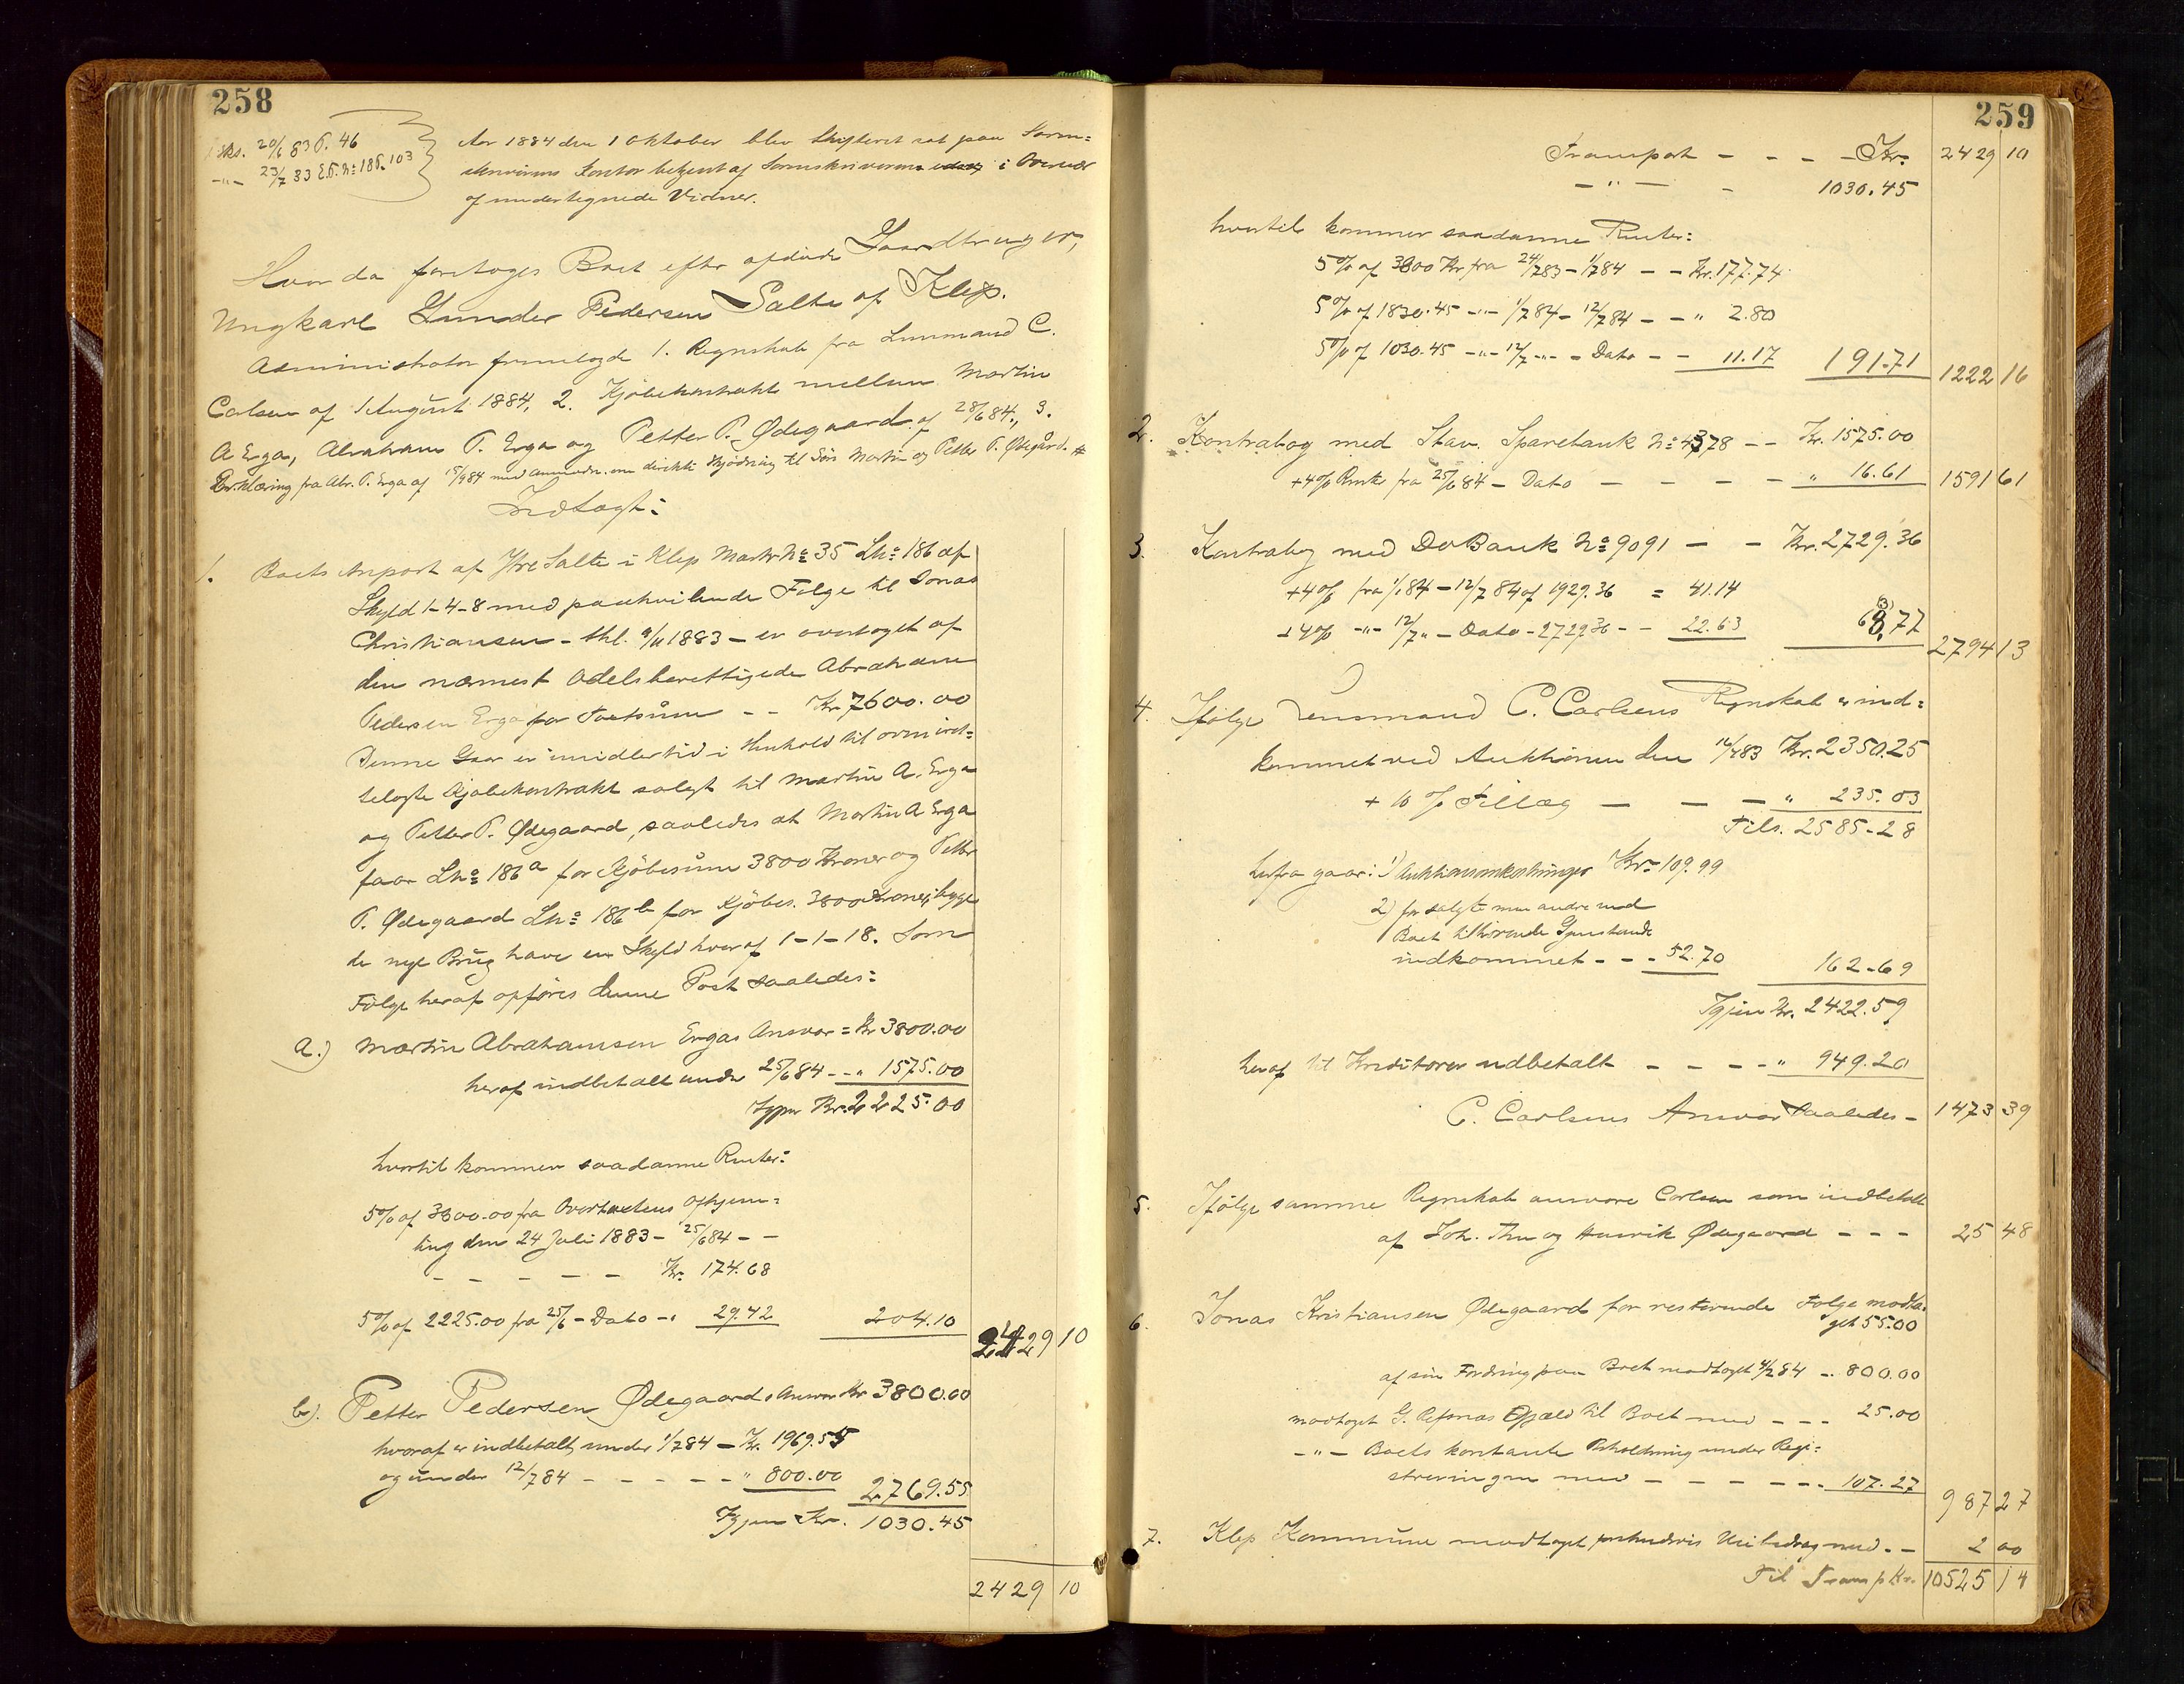 258
20/6 83 P. 46
-"- 23/7 83 E.P. No 185. 103
Aar 1884 den 1 Oktober blev Skifteret sat paa Soren=
skriverens Kontor betjent af Sorenskriveren i Overvær
af undertegnede Vidner.
Hvor da foretoges Boet efter afdøde Gaardbruger,
Ungkarl Gunder Pedersen Salte af Klep.
Administrator fremlagde 1. Regnskab fra Lensmand C.
Carlsen af 1 August 1884, 2. Kjøbekontrakt mellem Martin
A Erga, Abraham P. Erga og Petter P. Ødegaard af 28/6 84., 3.
Erklæring fra Abr. P. Erga af 15/9 84 med anmodn. om direkte Skjødning til Søn Martin og Petter P. Ødegård. #
Indtægt:
1. Boets Anpart af Yre Salte i Klep Matr No 35 Lno 186 af
Skyld 1-4-8 med paahvilende Følge til Jonas
Christiansen - thl. 9/11 1883 - er overtaget af
den nærmest Odelsberettigede Abraham
Pedersen Erga for Taxtsum - - Kr. 7600.00
Denne Gaar er imidlertid i Henhold til oveniret=
telagte Kjøbekontrakt solgt til Martin A. Erga
og Petter P. Ødegaard, saaledes at Martin A Erga
faar Lno 186 a for Kjøbesum 3800 Kroner og Petter
P. Ødegaard Lno 186 b for Kjøbes. 3800 Kroner, begge
de nye Brug have en Skyld hver af 1-1-18. Som
Følge heraf opføres denne Post saaledes:
a.) Martin Abrahamsen Ergas Ansvar = Kr 3800.00
heraf indbetalt under 25/6 84 - - " 1575.00
Igjen Kr. 2225.00
hvortil kommer saadanne Renter:
5% af 3800.00 fra Overtaxtens Afhjem=
ling den 24 Juli 1883 - 25/6 84 - -
- - - - - Kr. 174.68
5% af 2225.00 fra 25/6 - Dato - " 29.42 204.10
2429 10
b). Petter Pedersen Ødegaards Ansvar Kr 3800.00
hvoraf er indbetalt under 1/7 84 - Kr. 1969.55
og under 12/7 84 - - - - - " 800.00 2769.55
Igjen Kr. 1030.45
2429 10
259
Transport - - - - Kr. 2429 10
- " - - 1030.45
hvortil kommer saadanne Renter:
5% af 3800 Kr fra 24/7 83 - 1/7 84 - - Kr. 177.74
5% af 1830.45 -"- 1/7 84 - 12/7 84 - - " 2.80
5% af 1030.45 -"- 12/7 -"- - Dato - - 11.17 191.71 1222 16
2. Kontrabog med Stav. Sparebank No 4378 - - Kr. 1575.00
+ 4% Rente fra 25/6 84 - Dato - - - - " 16.61 1591 61
3. Kontrabog med Do Bank No 9091 - - Kr. 2729.36
+ 4% fra 1/1 84 - 12/7 84 af 1929.36 = 41.14
+ 4% -"- 12/7 " - Dato - 2729 36 - - 22.63 68,77
2794 13
4. Ifølge Lensmand C. Carlsens Regnskab er ind=
kommet ved Auktionen den 16/7 83 Kr. 2350.25
+ 10% Tillæg - - - " 235.03
Tils. 2585.28
herfra gaar: 1) Auktionsomkostninger Kr. 109.99
2) for solgte men andre end
Boet tilhørende Gjenstande
indkommet - - - 52.70 162.69
Igjen Kr. 2422.59
heraf til Kreditorer udbetalt - - - - " 949.20
C. Carlsens Ansvar saaledes - 1473 39
5. Ifølge samme Regnskab ansvare Carlsen som indbetalt
af Joh. Thu og Henrik Ødegaard - - - 25 48
6. Jonas Kristiansen Ødegaard for resterende Følge modta-
get 55.00
af sin Fordring paa Boet modtaget 4/2 84 - . 800.00
modtaget G. Refsnas Gjæld til Boet med - - - 25.00
- " - Boets kontante Beholdning under Regi=
streringen med - - - - - - 107.27
987 27
7. Klep Kommune modtaget Veibidrag med. - 2 00
Til Transp Kr. 10525 14